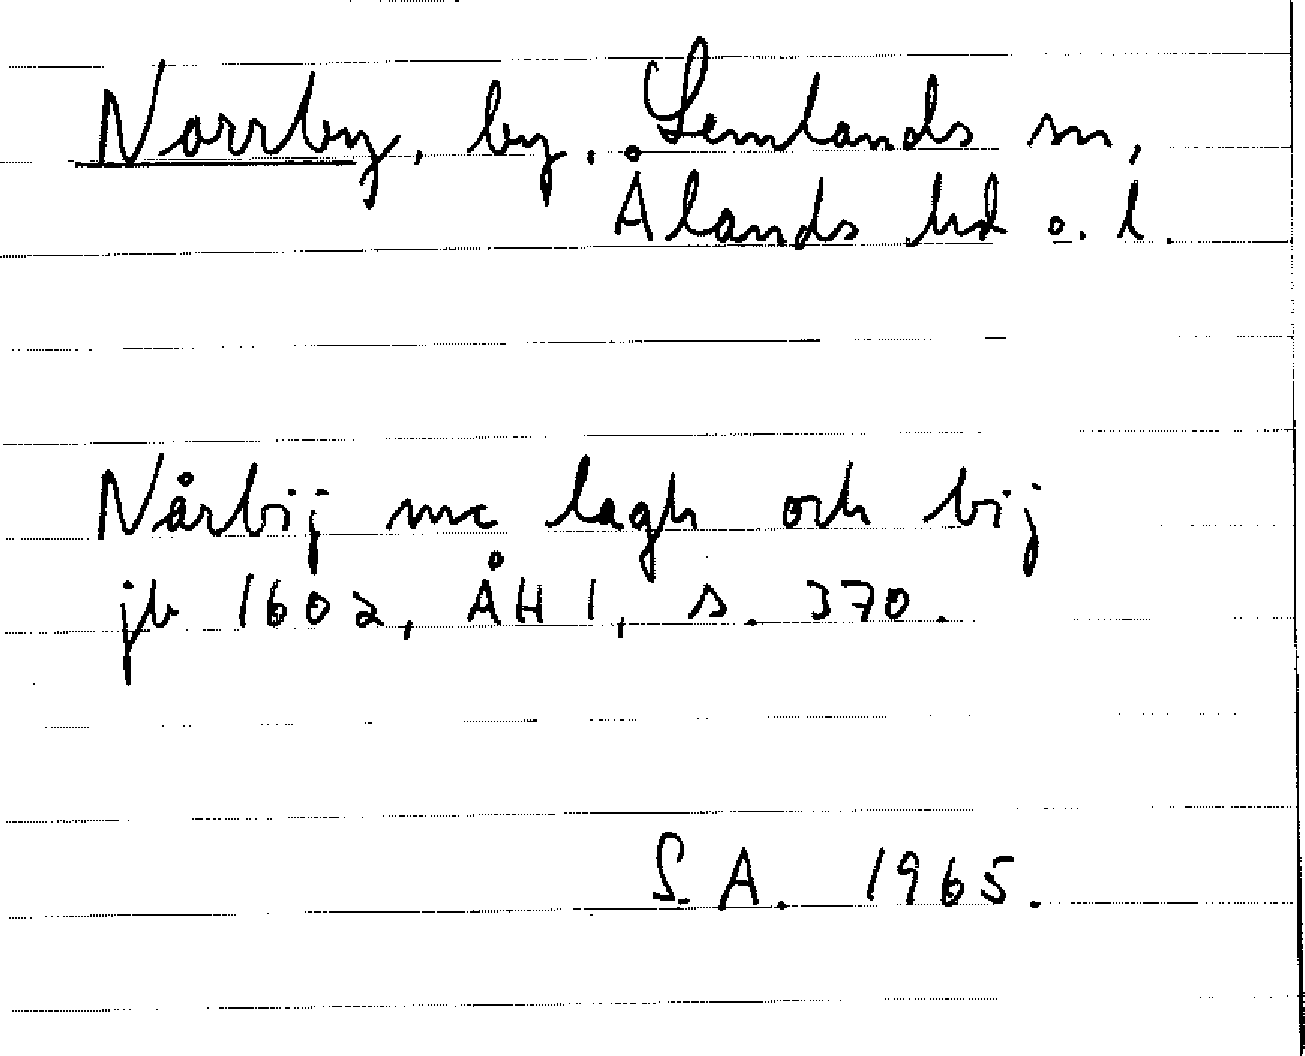 Norrby, by. Lemlands sn,
Ålands hd o. l.
Nårbij mc lagh och bij
jb 1602, ÅH 1, s. 370.
S. A. 1965.